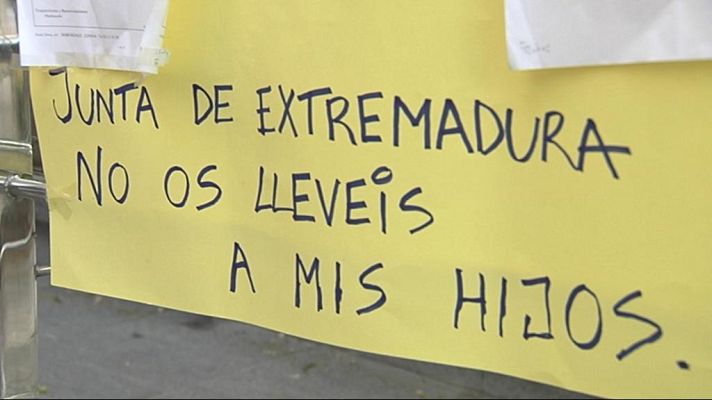 JUNTA DE EXTREMADURA
NO OS LLEVEIS
A MIS HIJOS.